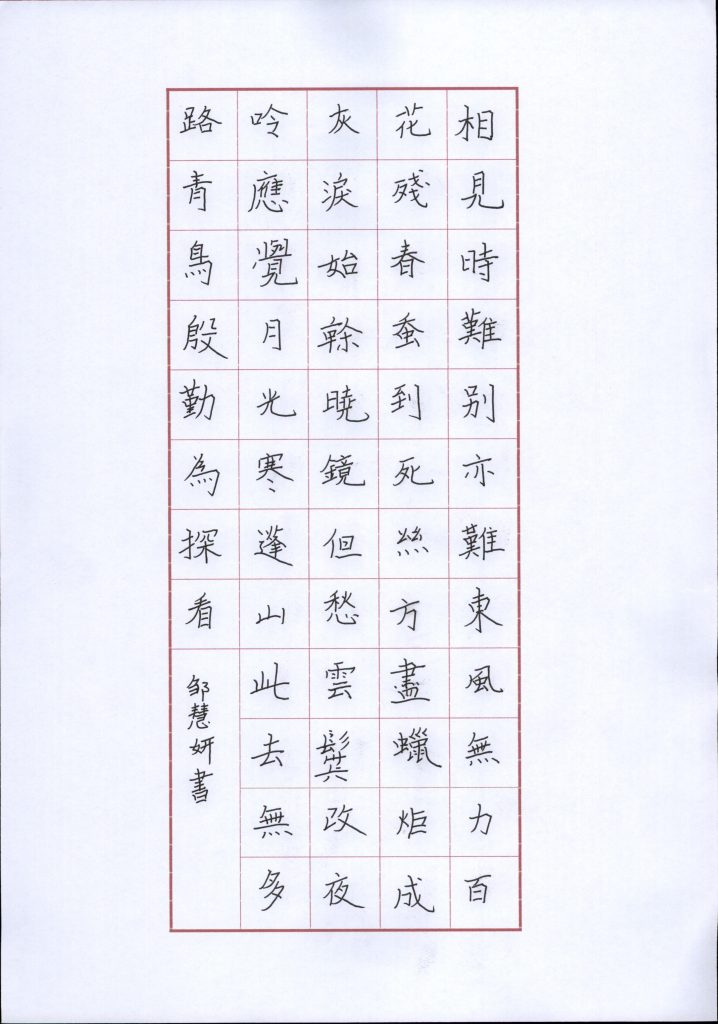 相見時難别亦難東風無力百
花殘春蚕到死絲方盡蠟炬成
灰淚始榦曉鏡但愁雲鬂改夜
吟應覺月光寒蓬山此去無多
路青鳥殷勤為探看
邹慧妍書